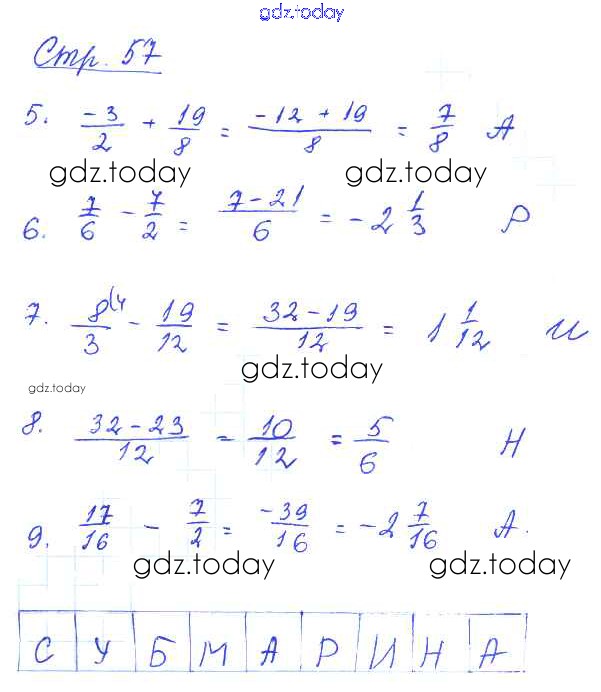 gdz.today
Стр. 57
5. -3/2 + 19/8 = (-12 + 19)/8 = 7/8 А
gdz.today gdz.today
6. 7/6 - 7/2 = (7 - 21)/6 = -2 1/3 Р
7. 8(4/3 - 19/12 = (32 - 19)/12 = 1 1/12 И
gdz.today
gdz.today
8. (32 - 23)/12 = 10/12 = 5/6 Н
9. 17/16 - 7/2 = -39/16 = -2 7/16 А.
gdz.today gdz.today
С У Б М А Р И Н А